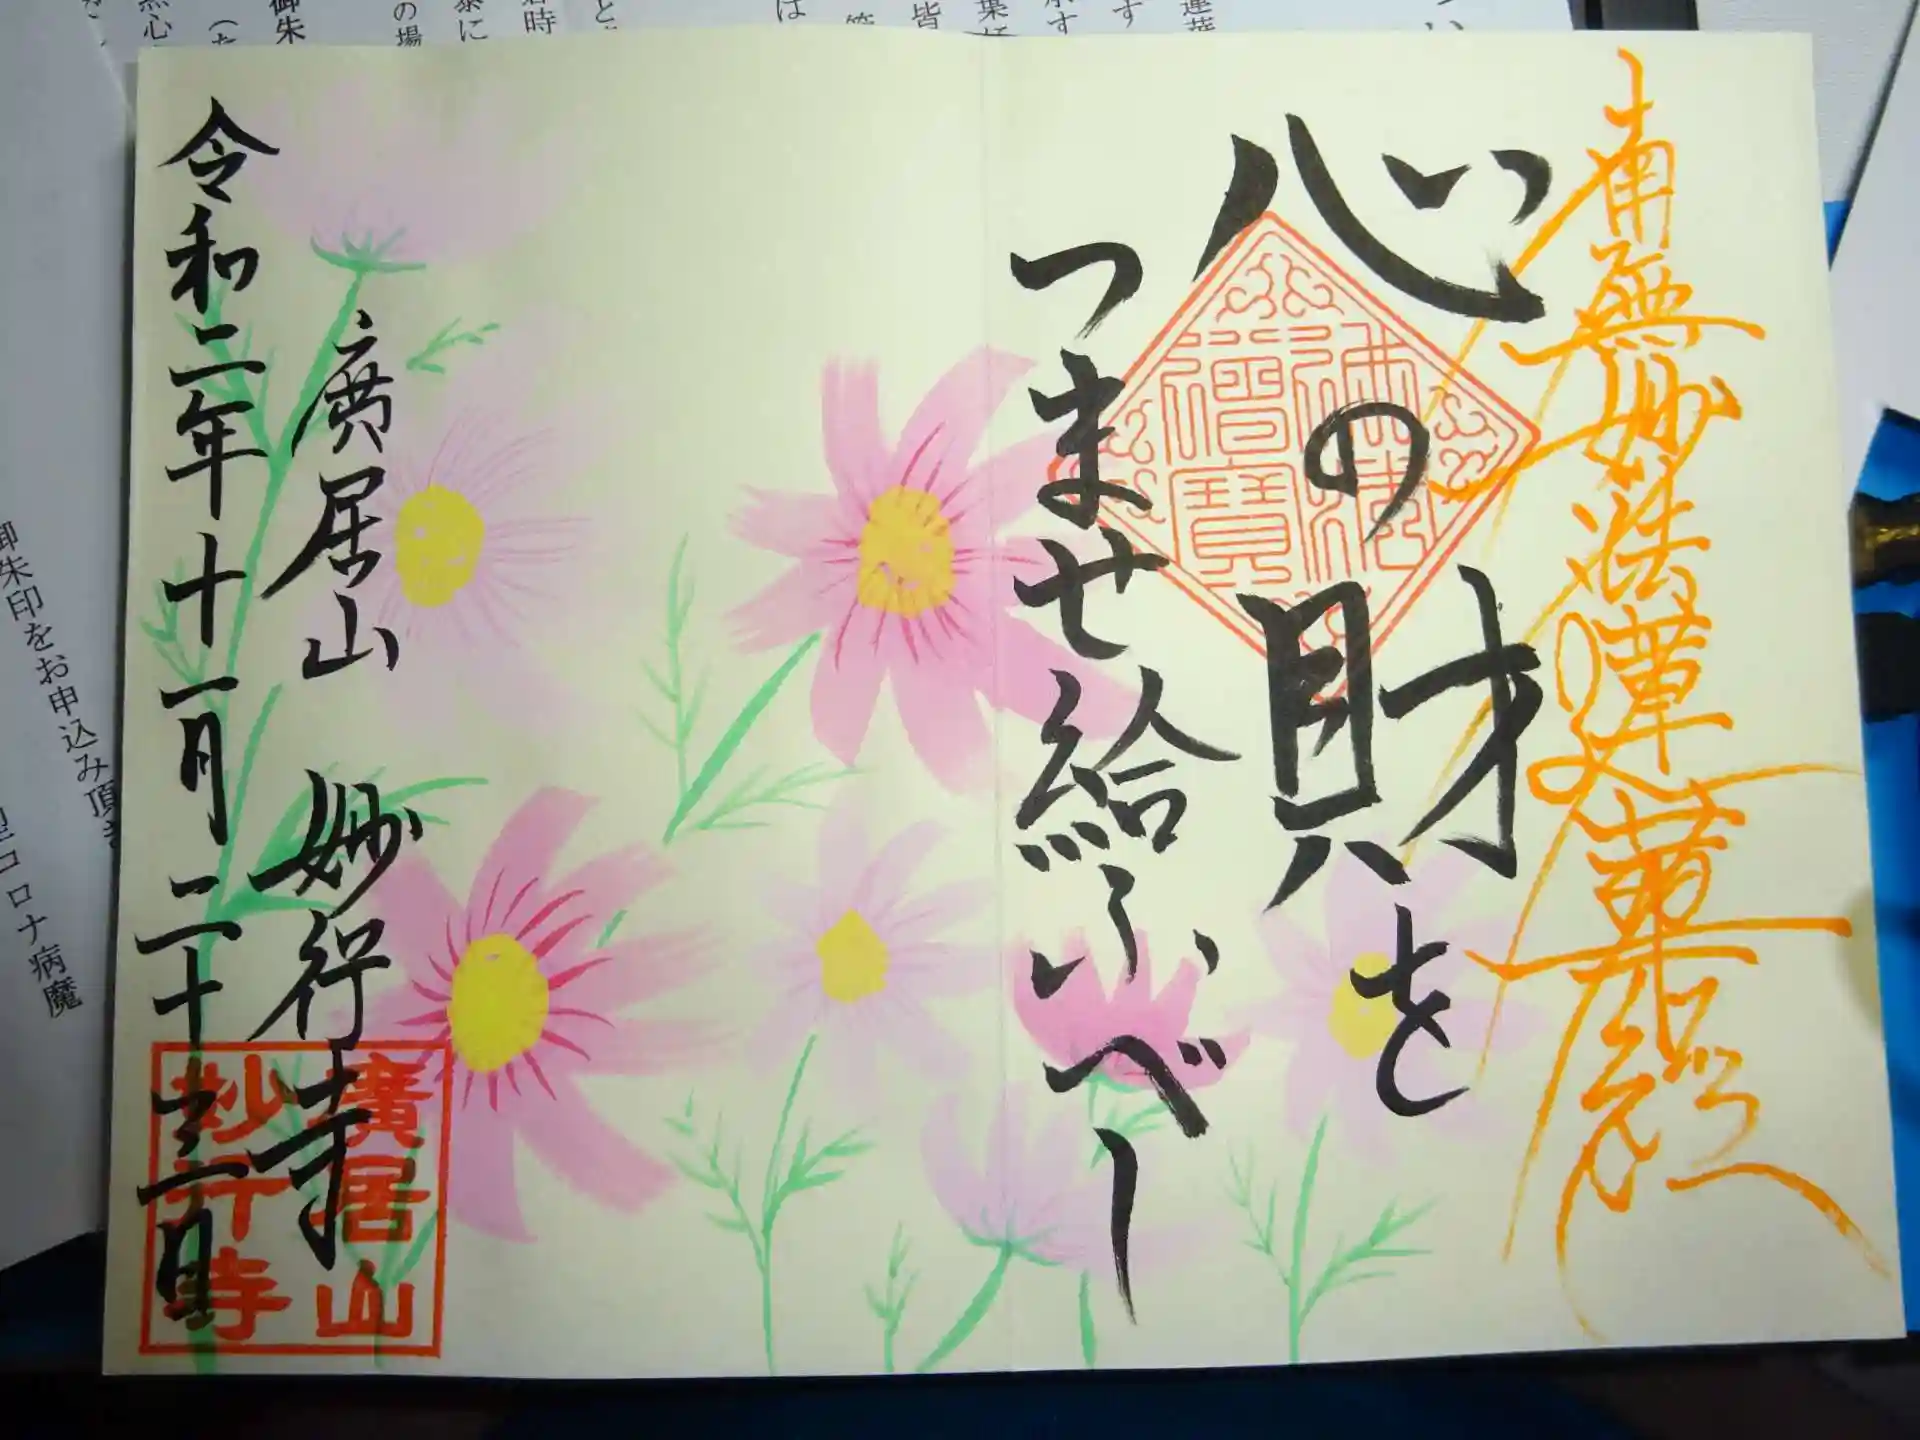 南無妙法蓮華経
心の財を
つませ給ふべし
廣居山 妙行寺
令和二年十一月二十三日
佛法僧寶
廣居山
妙行寺
御朱印をお申込み頂き
コロナ病魔
御朱
の場
時
皆